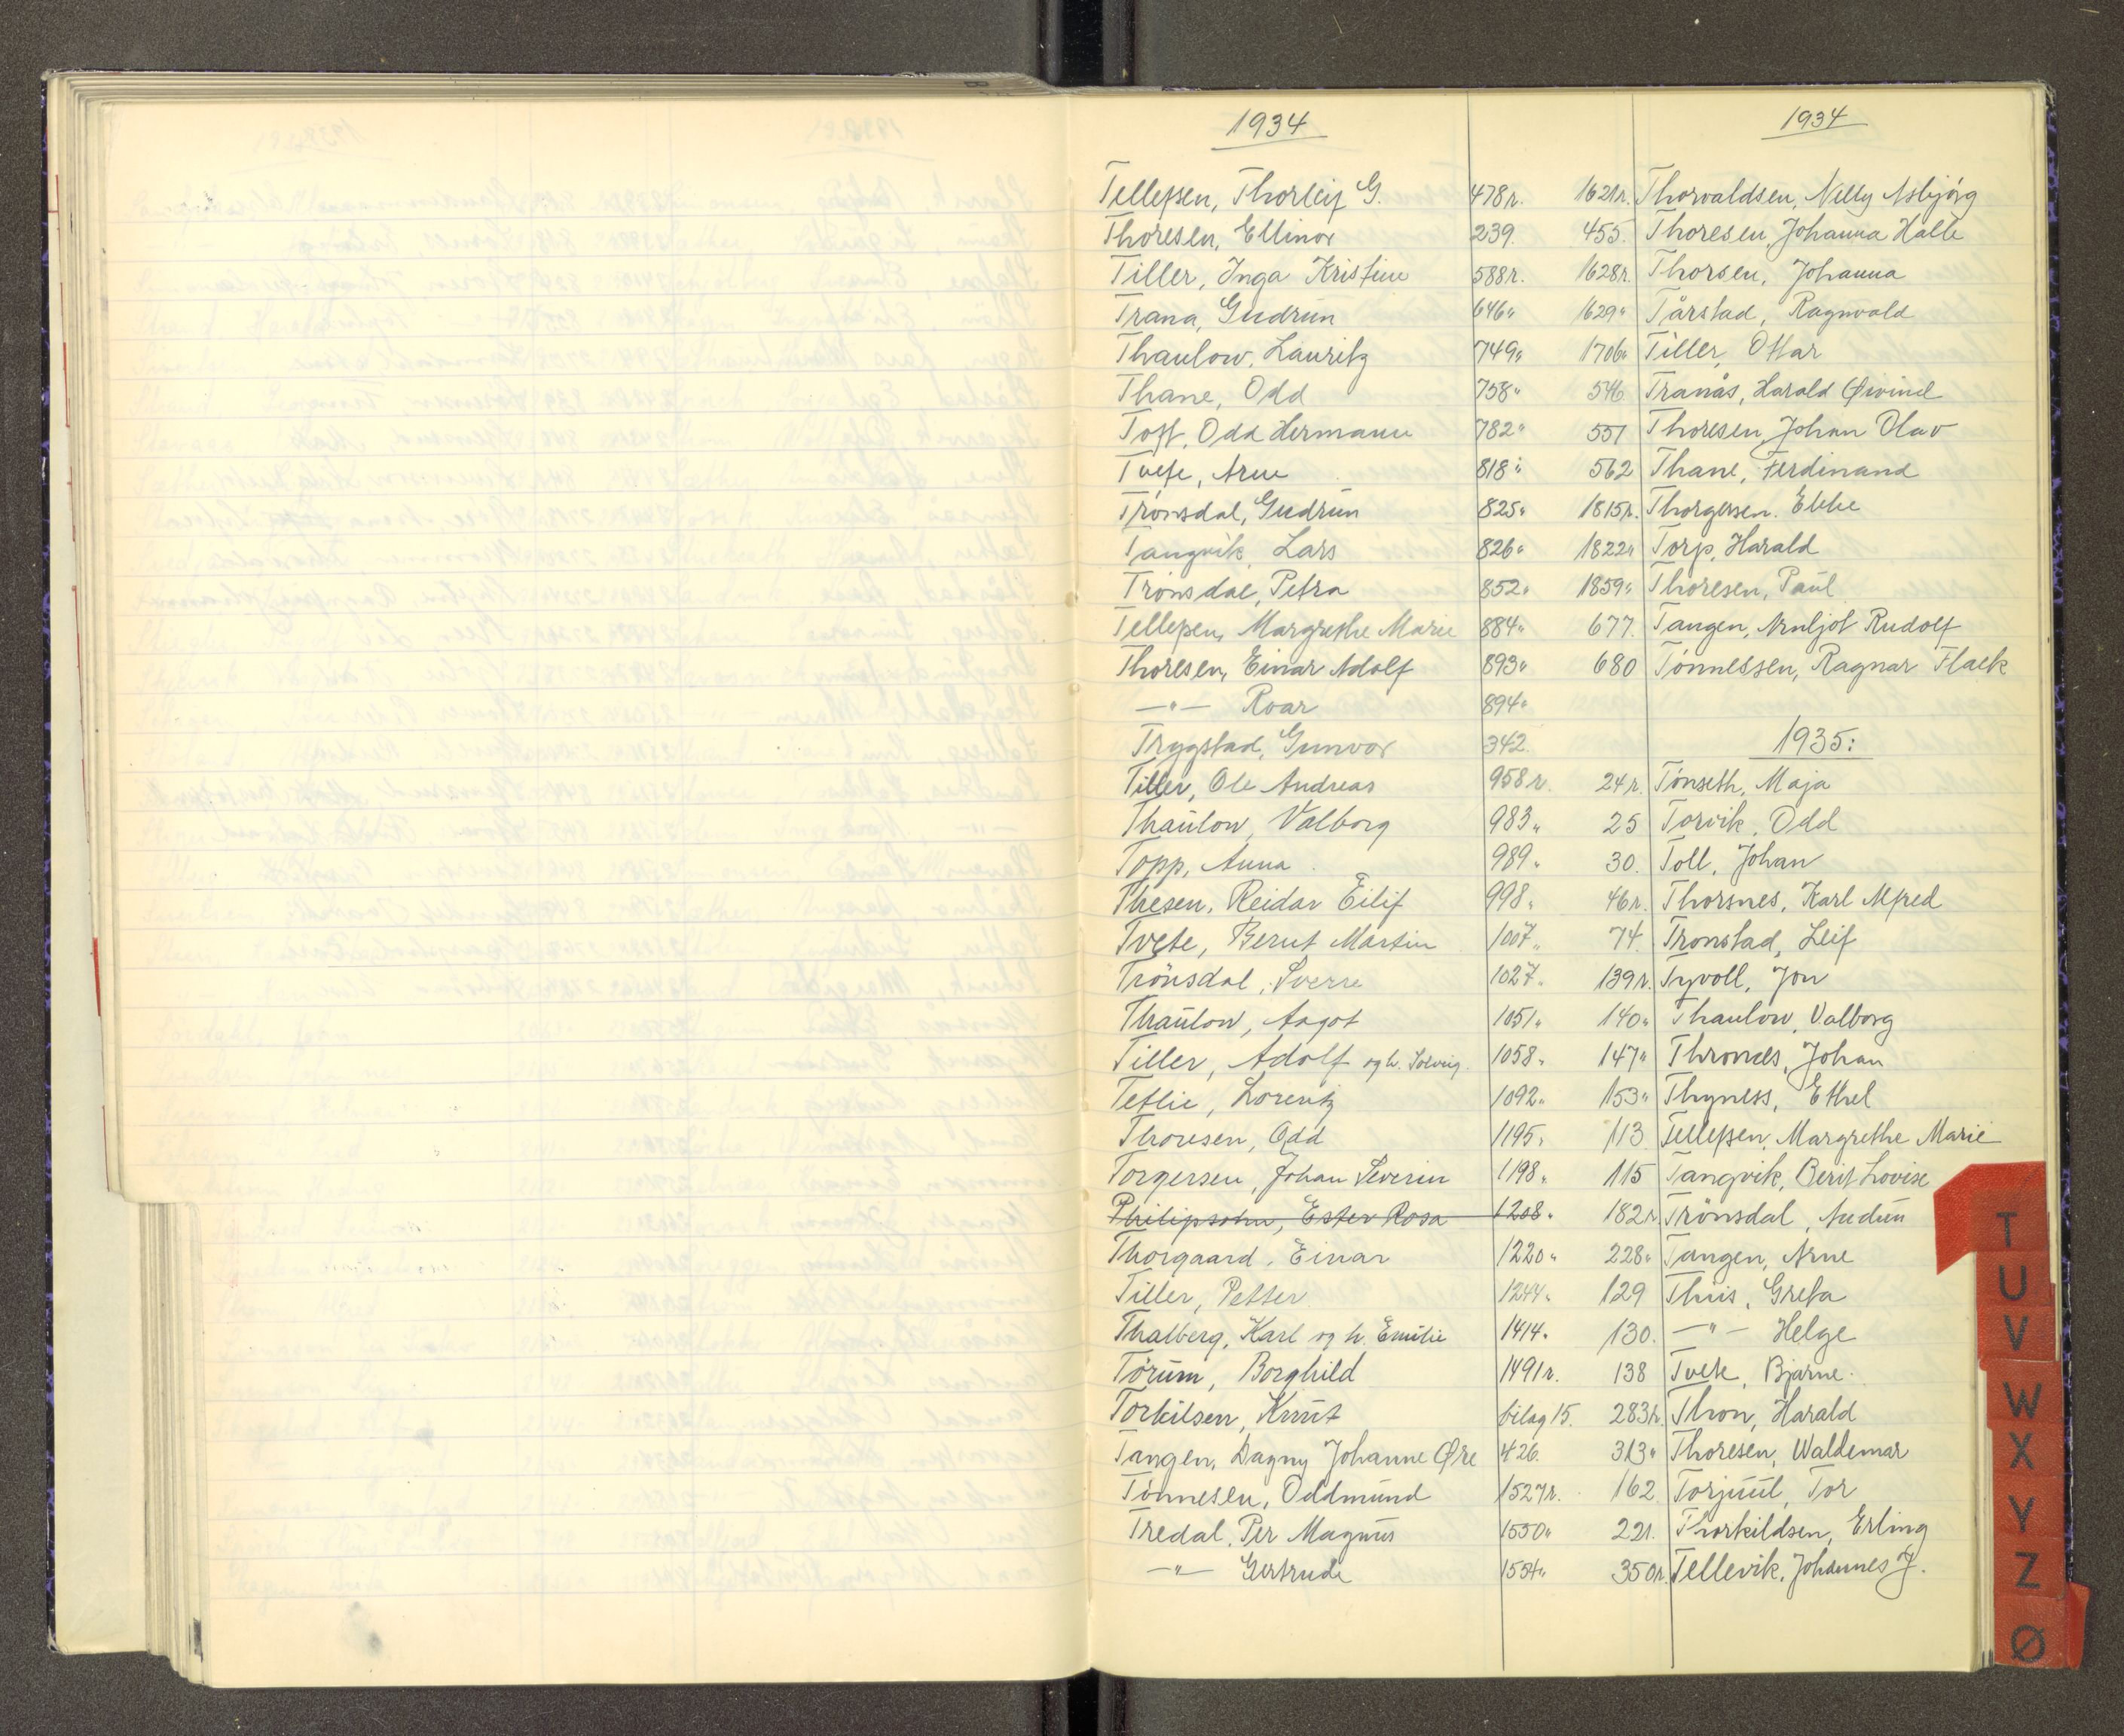 1934
Tellefsen, Thorleif G. 478r.
Thoresen, Ellinor 239.
Tiller, Inga Kristine 588r.
Trana, Gudrun 646"
Thaulow, Lauritz 749"
Thane, Odd 758"
Toft, Odd Hermann 782"
Tvete, Arne 818"
Trønsdal, Gudrun 825"
Tangvik, Lars 826"
Trønsdal, Petra 852"
Tellefsen, Margrethe Marie 884"
Thoresen, Einar Adolf 893"
—"— Roar 894"
Trygstad, Gunvor 342.
Tiller, Ole Andreas 958r.
Thaulow, Valborg 983"
Topp, Anna 989"
Thesen, Reidar Eilif 998"
Tvete, Bernt Martin 1007"
Trönsdal, Sverre 1027"
Thaulow, Aagot 1051"
Tiller, Adolf og h. Solveig 1058"
Tetlie, Lorentz 1092"
Thoresen, Odd 1195"
Torgersen, Johan Severin 1198"
Philipsohn, Ester Rosa 1208"
Thorgaard, Einar 1220"
Tiller, Petter 1244"
Thalberg, Karl og h. Emilie 1414"
Tørum, Borghild 1491r.
Torkilsen, Knut bilag 15.
Tangen, Dagny Johanne Øre 426.
Tønnesen, Oddmund 1527r.
Tredal, Per Magnus 1550"
—"— Gertrude 1554"
1934
1621r. Thorvaldsen, Nelly Asbjørg
455. Thoresen, Johanna Halle
1628r. Thorsen, Johanna
1629" Tårstad, Ragnvald
1706" Tiller, Ottar
546 Tranås, Harald Øivind
551 Thoresen, Johan Olav
562 Thane, Ferdinand
1815r. Thorgersen, Ebbe
1822" Torp, Harald
1859" Thoresen, Paul
677. Tangen, Arnljot Rudolf
680 Tønnessen, Ragnar Flack
1935:
24r. Tønseth, Maja
25 Torvik, Odd
30. Toll, Johan
46r. Thorsnes, Karl Alfred
74. Tronstad, Leif
139r. Tyvoll, Jon
140" Thaulow, Valborg
147" Thrones, Johan
153" Thyness, Ethel
113 Tellefsen, Margrethe Marie
115 Tangvik, Berit Lovise
182r Trönsdal, Audun
228" Tangen, Arne
129 Thiis, Greta
130. —"— Helge
138 Tvete, Bjarne.
283r. Thon, Harald
313" Thoresen, Waldemar
162 Torjuul, Tor
221. Thorkildsen, Erling
350r. Tellevik, Johannes J.
T
U
V
W
X
Y
Z
Ø